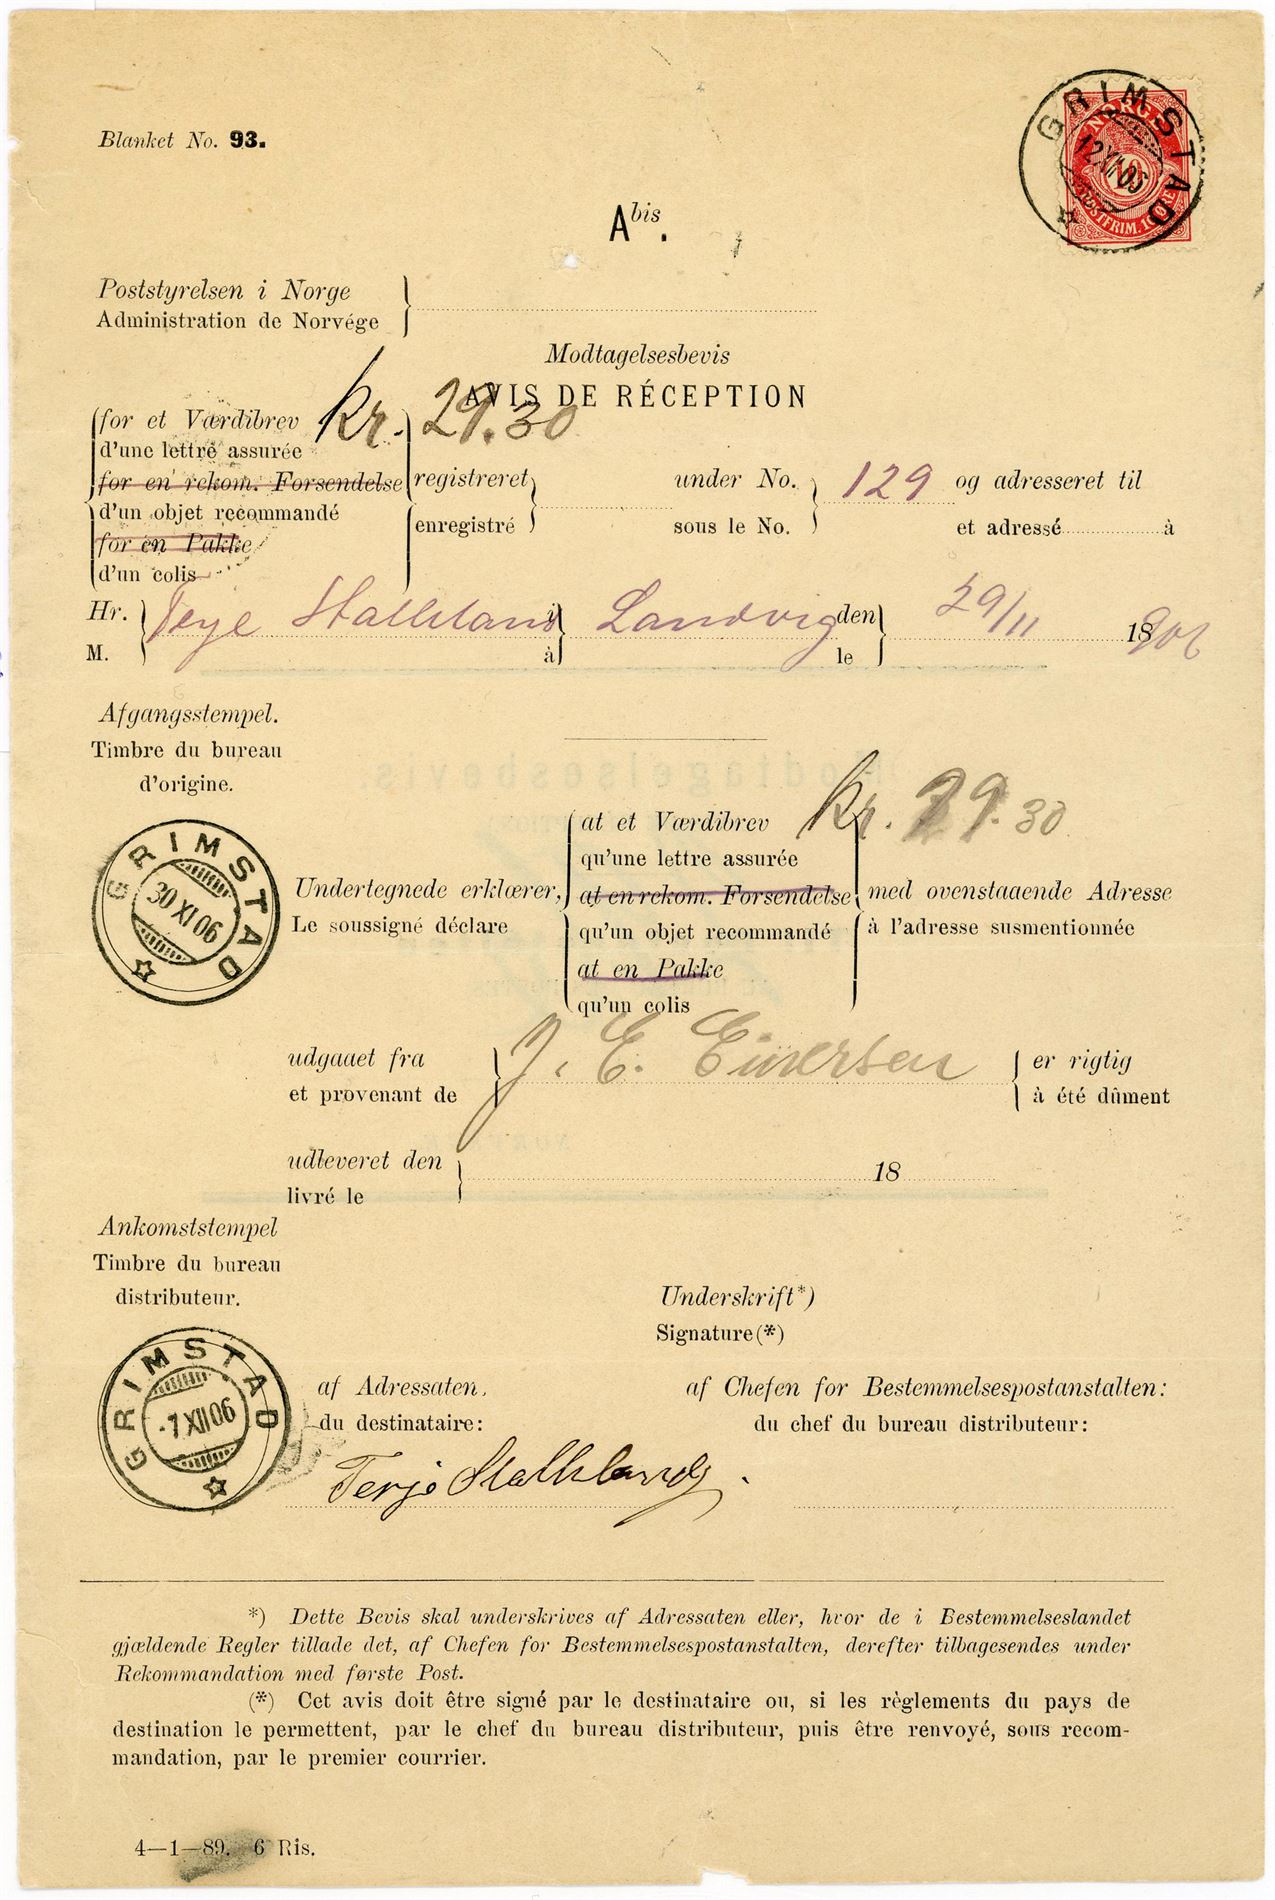 Blanket No. 93.
GRIMSTAD
12 XI 06
NORGE
10
POSTFRIM. 10 ØRE
Abis.
Poststyrelsen i Norge
Administration de Norvége
Modtagelsesbevis
AVIS DE RÉCEPTION
for et Værdibrev kr. 29.30
d'une lettre assurée
for en rekom. Forsendelse registreret under No. 129 og adresseret til
d'un objet recommandé enregistré sous le No. et adressé à
for en Pakke
d'un colis
Hr. Terje Stalleland i Landvig den 29/11 18906
M. à le
Afgangsstempel.
Timbre du bureau
d'origine.
GRIMSTAD
30 XI 06
at et Værdibrev kr. 29.30
qu'une lettre assurée
Undertegnede erklærer, at en rekom. Forsendelse med ovenstaaende Adresse
Le soussigné déclare qu'un objet recommandé à l'adresse susmentionnée
at en Pakke
qu'un colis
udgaaet fra J. E. Evensen er rigtig
et provenant de à été dûment
udleveret den 18
livré le
Ankomststempel
Timbre du bureau
distributeur.
GRIMSTAD
-7 XII 06
Underskrift*)
Signature(*)
af Adressaten. af Chefen for Bestemmelsespostanstalten:
du destinataire: du chef du bureau distributeur:
Terje Stalleland
*) Dette Bevis skal underskrives af Adressaten eller, hvor de i Bestemmelseslandet
gjældende Regler tillade det, af Chefen for Bestemmelsespostanstalten, derefter tilbagesendes under
Rekommandation med første Post.
(*) Cet avis doit être signé par le destinataire ou, si les règlements du pays de
destination le permettent, par le chef du bureau distributeur, puis être renvoyé, sous recom-
mandation, par le premier courrier.
4—1—89. 6 Ris.